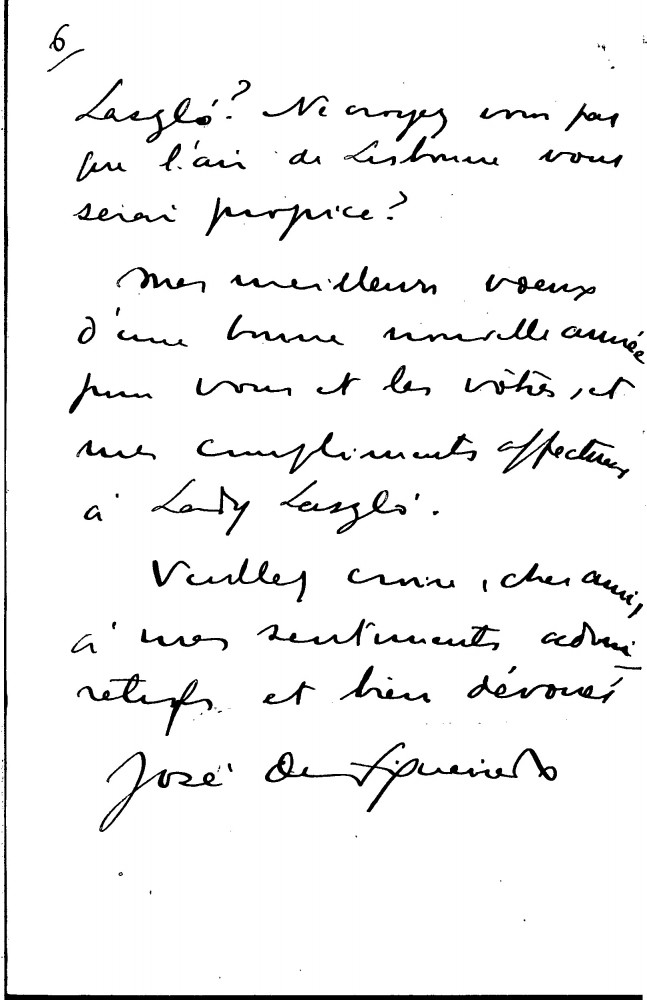 6/
Laszló? Ne croyez vous pas
que l'air de Lisbonne vous
serai propice?
Mes meilleurs voeux
d'une bonne nouvelle année
pour vous et les vôtres, et
mes compliments affectueux
à Lady Laszló.
Veuillez croire, cher ami,
à mes sentiments admi-
ratifs et bien dévoués
José de Figueiredo